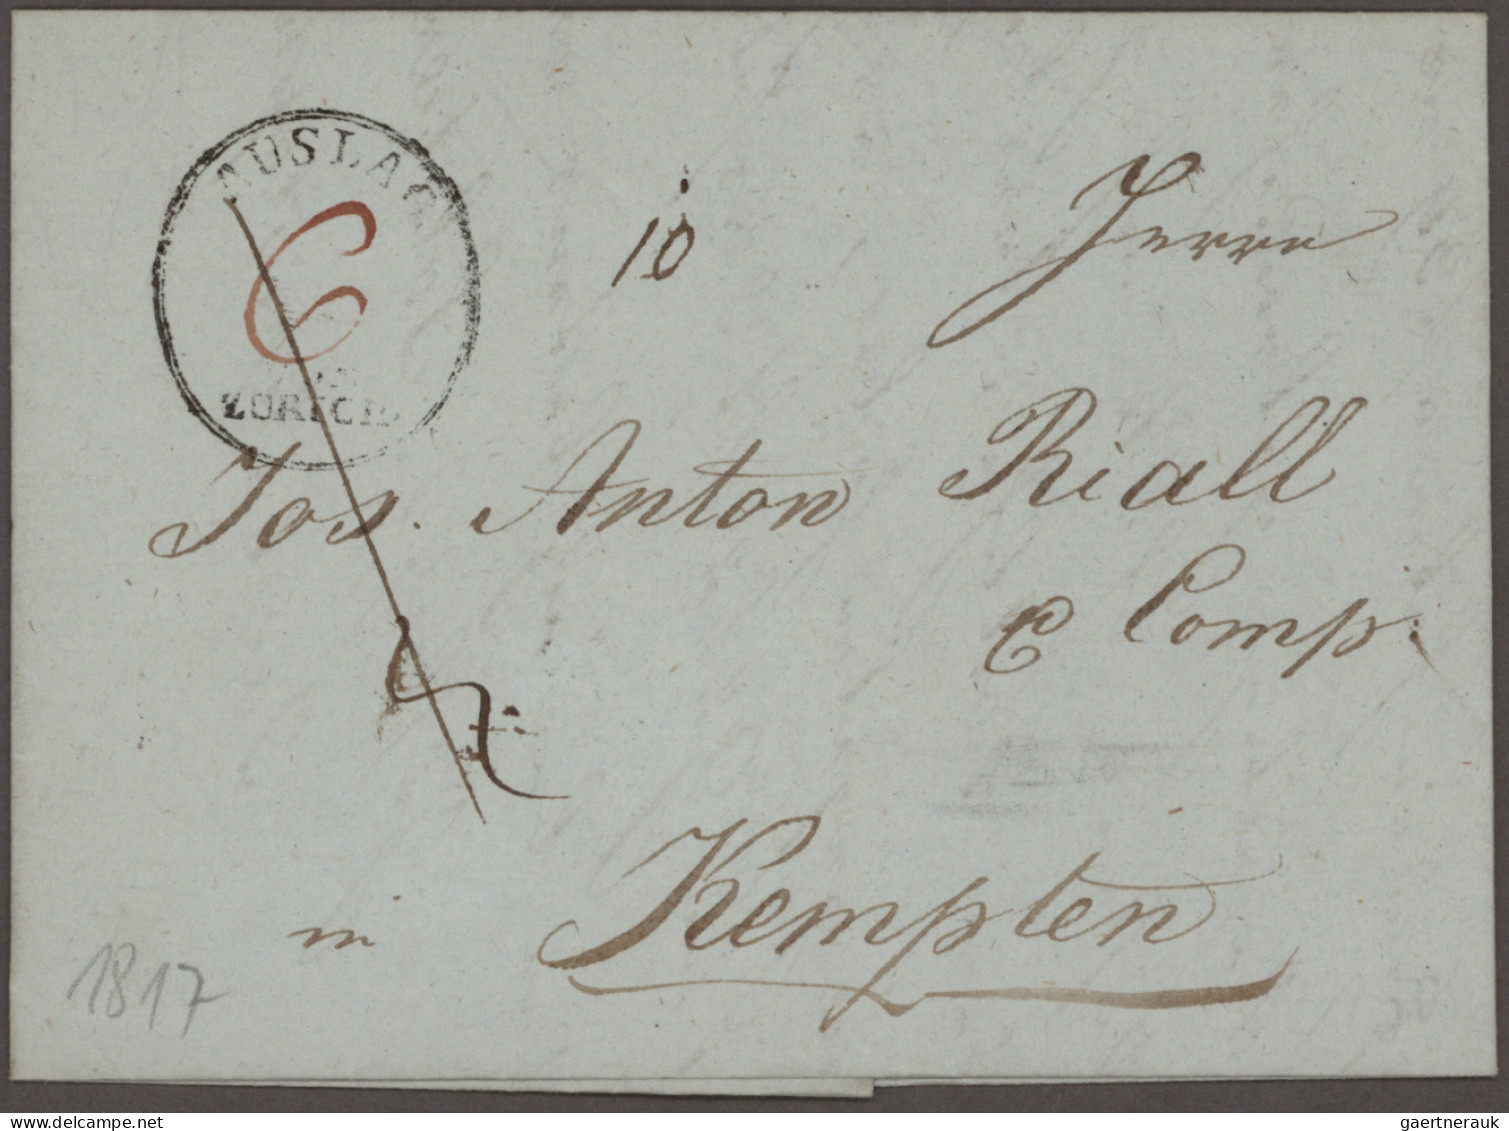 AUSLAG
6
ZÜRICH
10
Herrn
Jos. Anton Riall
& Comp.
in Kempten
1817
gaertnerauk